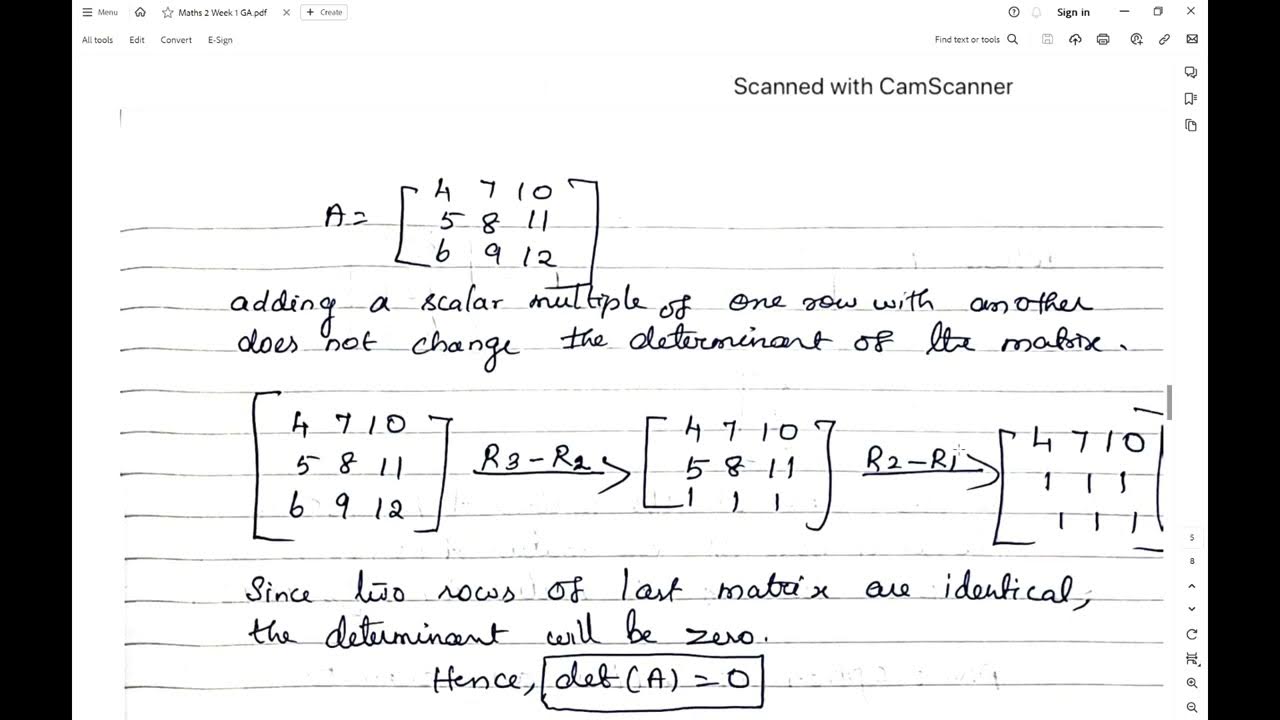 Menu
Maths 2 Week 1 GA.pdf
Create
Sign in
All tools Edit Convert E-Sign
Find text or tools
Scanned with CamScanner
A = [ 4 7 10
5 8 11
6 9 12 ]
adding a scalar multiple of one row with another
does not change the determinant of the matrix.
[ 4 7 10
5 8 11
6 9 12 ]
R3 - R2
[ 4 7 10
5 8 11
1 1 1 ]
R2 - R1
[ 4 7 10
1 1 1
1 1 1 ]
Since two rows of last matrix are identical,
the determinant will be zero.
Hence, det(A) = 0
5
8